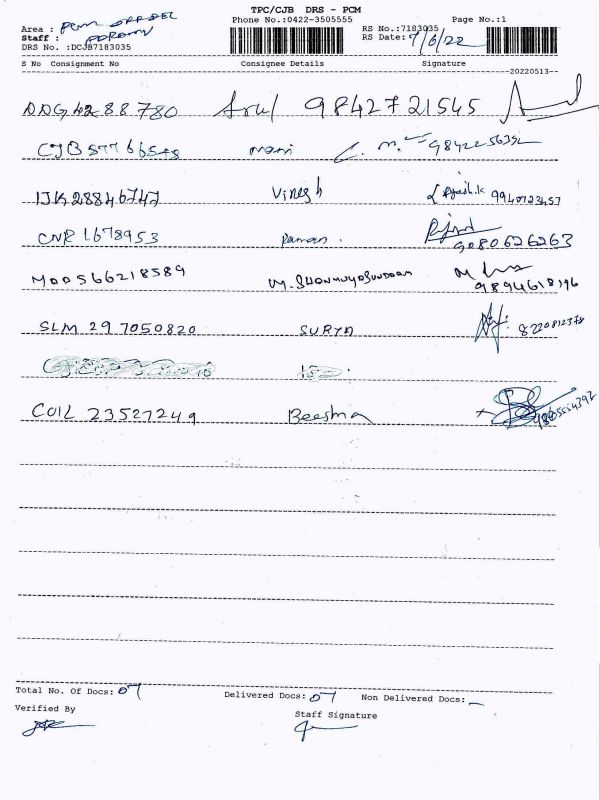 TPC/CJB DRS - PCM
Phone No.:0422-3505555 Page No.:1
Area :
Staff :
RS No.:7183035
RS Date: 7/6/22
DRS No. :DCJB7183035
S No Consignment No Consignee Details Signature
20220513
DDG4288780 Arul 9842721545
CJB 57766548 mani 984225632
IJK28846747 Vinesh 9940123457
CNR 1678953 Raman. 9080626263
MAA566218589 M. Shanmugasundaram 9894618196
SLM 297050820 SURYA 8220812378
COIL 23527249 Beesma
Total No. Of Docs: 07 Delivered Docs: 07 Non Delivered Docs: _
Verified By Staff Signature